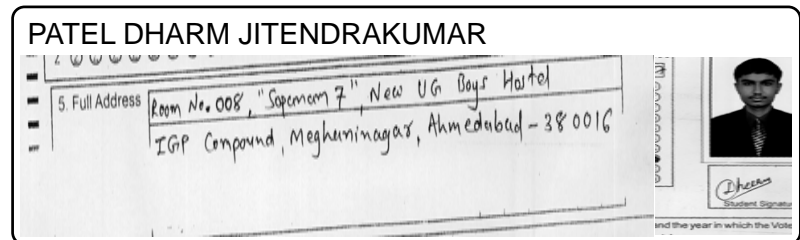 PATEL DHARM JITENDRAKUMAR
5. Full Address
Room No. 008, "Sopanam 7", New UG Boys Hostel
IGP Compound, Meghaninagar, Ahmedabad - 380016
Student Signatu
and the year in which the Vote